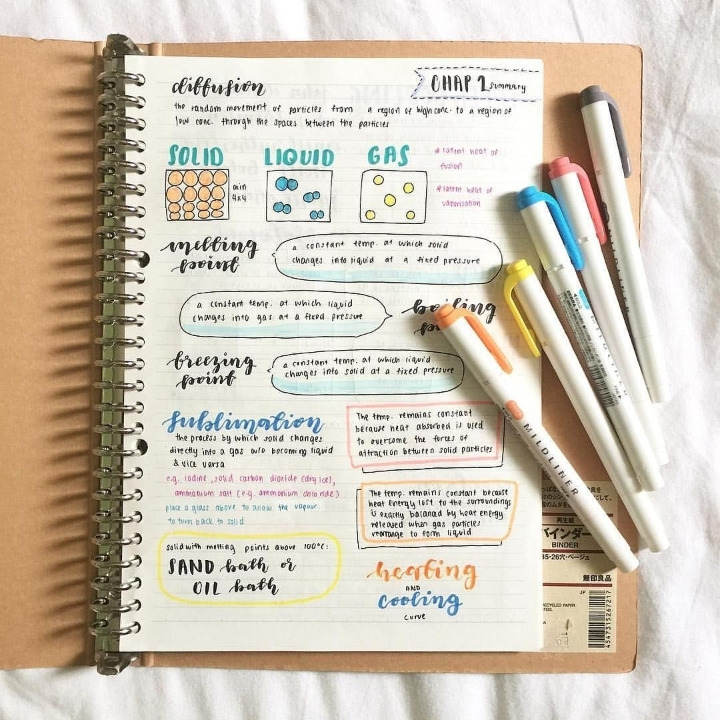 diffusion
CHAP 1 summary
the random movement of particles from a region of high conc. to a region of
low conc. through the spaces between the particles
SOLID LIQUID GAS
* latent heat of
fusion
* latent heat of
vaporisation
min
4x4
melting
point
a constant temp. at which solid
changes into liquid at a fixed pressure
a constant temp. at which liquid
changes into gas at a fixed pressure
boiling
freezing
point
a constant temp. at which liquid
changes into solid at a fixed pressure
sublimation
the process by which solid changes
directly into a gas w/o becoming liquid
& vice versa
e.g. iodine, solid carbon dioxide (dry ice),
ammonium salt (e.g. ammonium chloride)
place a glass above to allow the vapour
to turn back to solid
solid with melting points above 100°C:
SAND bath or
OIL bath
The temp. remains constant
because heat absorbed is used
to overcome the forces of
attraction between solid particles
The temp. remains constant because
heat energy lost to the surroundings
is exactly balanced by heat energy
released when gas particles
rearrange to form liquid
heating
AND
cooling
curve
MILDLINER
再生紙
バインダー
BINDER
B5・26穴・ベージュ
無印良品
JP
RECYCLED PAPER
4547315267217